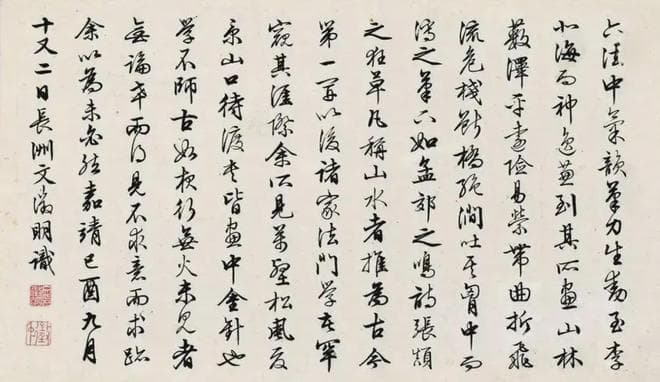 六法中氣韻筆力生動至李
北海而神逸兼到其所画山林
藪澤平遠險易縈帶曲折飛
流危棧斷橋絕澗吐其胸中而
瀉之筆下如孟郊之鳴詩張顛
之狂草凡稱山水者推為古今
第一耳以後諸家法門學者罕
窺其涯際余所見萬壑松風夏
景山口待渡卷皆画中金針也
學不師古如夜行無火未見者
無論幸而得見不求意而求跡
余以為未必然嘉靖己酉九月
十又二日長洲文徵明識